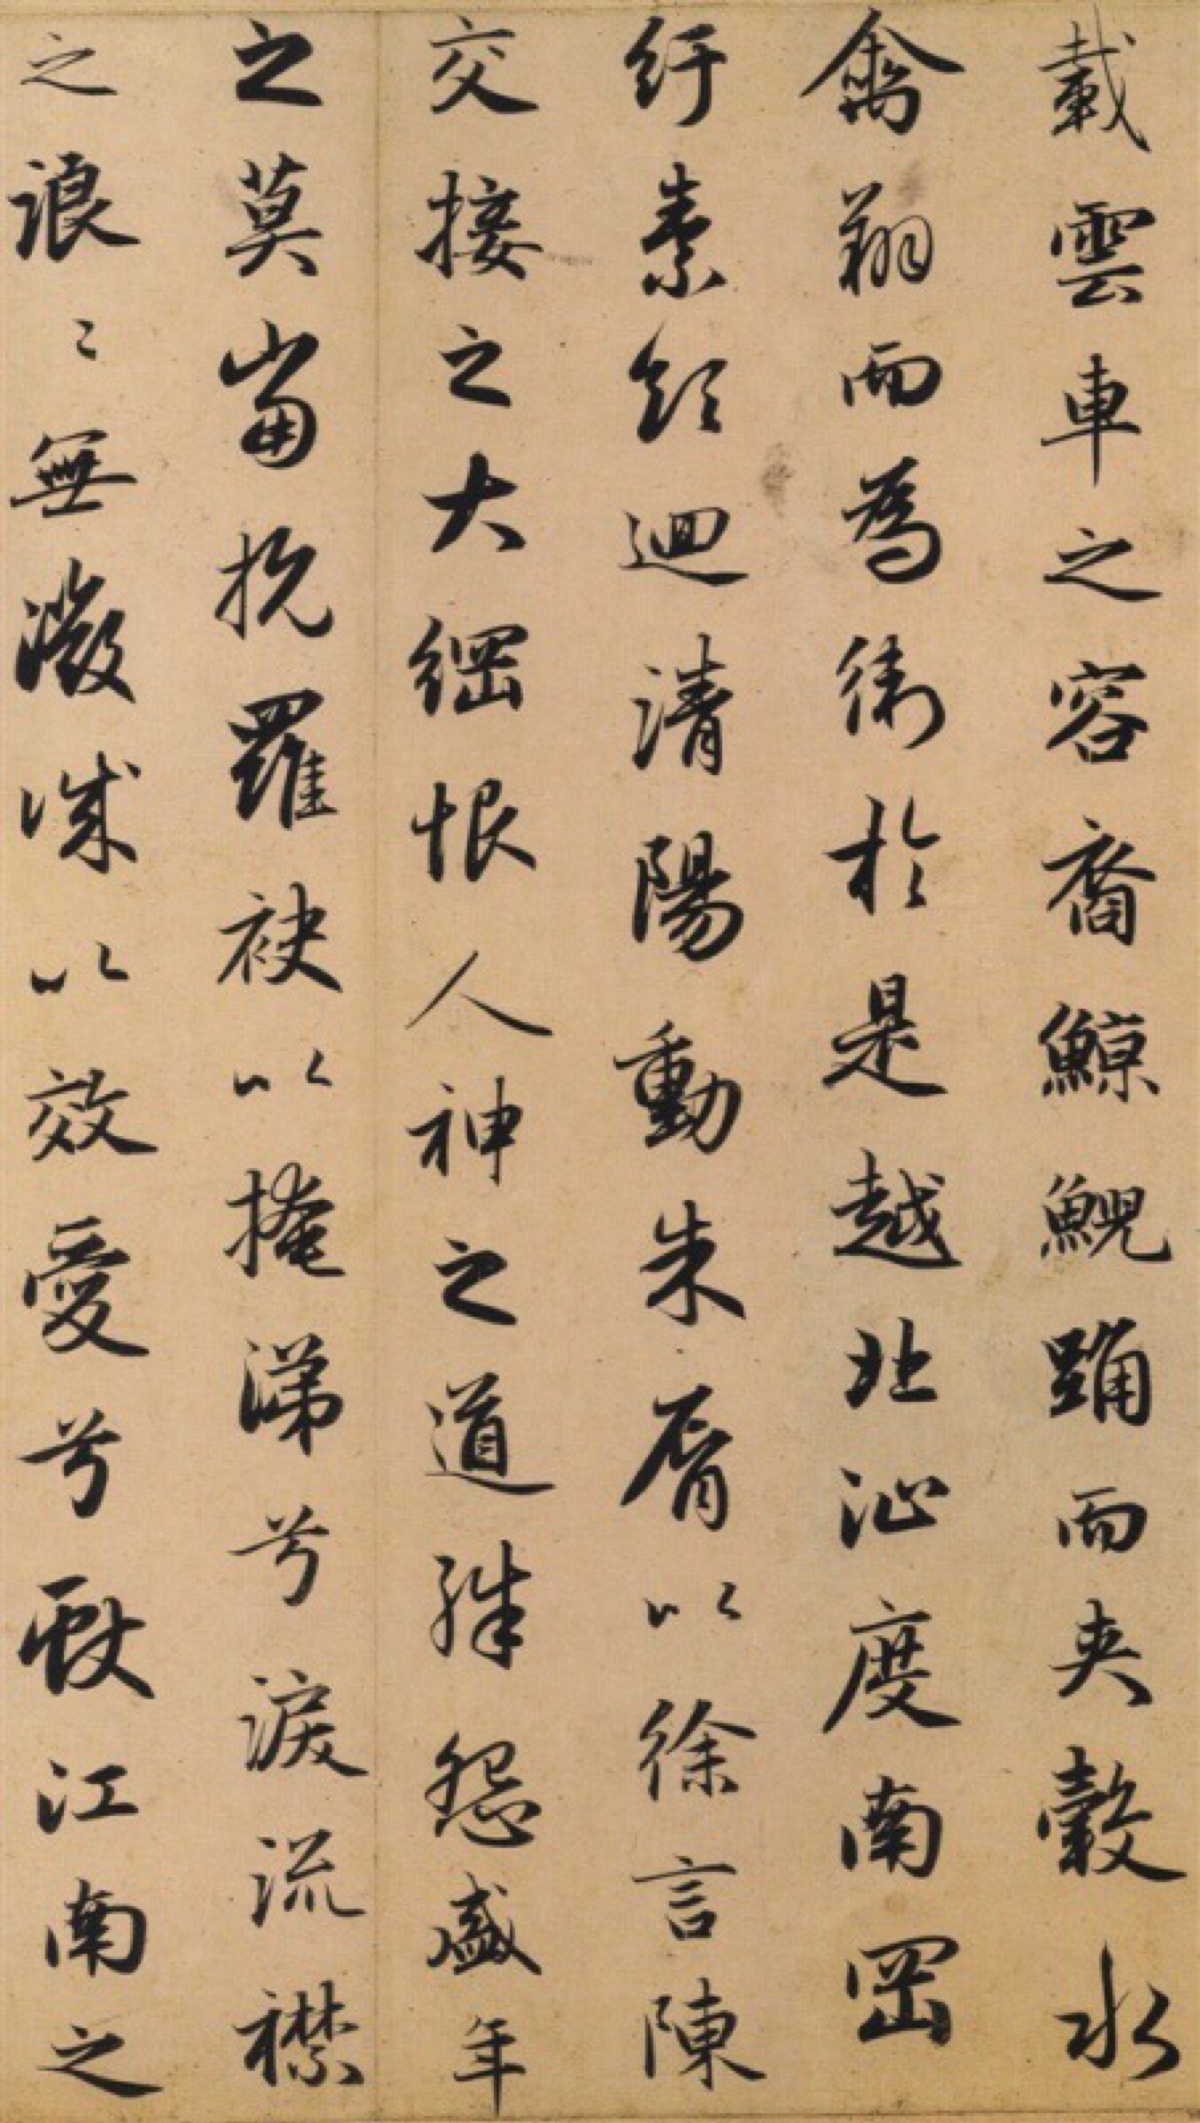 載雲車之容裔鯨鯢踊而夾轂水
禽翔而為衛於是越北沚度南岡
紆素領迴清陽動朱脣以徐言陳
交接之大綱恨人神之道殊怨盛年
之莫當抗羅袂以掩涕兮淚流襟
之浪〻無微誠以效愛兮獻江南之